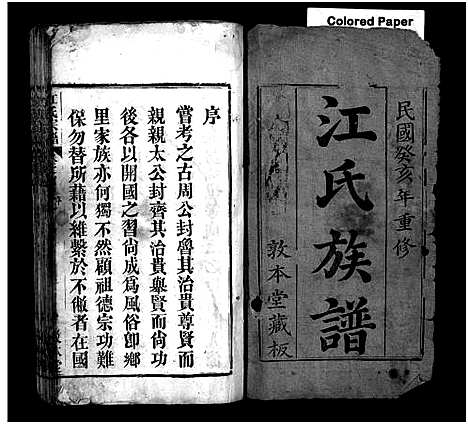 Colored Paper
民國癸亥年重修
江氏族譜
敦本堂藏板
序
嘗考之古周公封魯其治貴尊賢而
親親太公封齊其治貴舉賢而尚功
後各以開國之習尚成為風俗卽鄉
里家族亦何獨不然顧祖德宗功難
保勿替所藉以維繫於不敝者在國